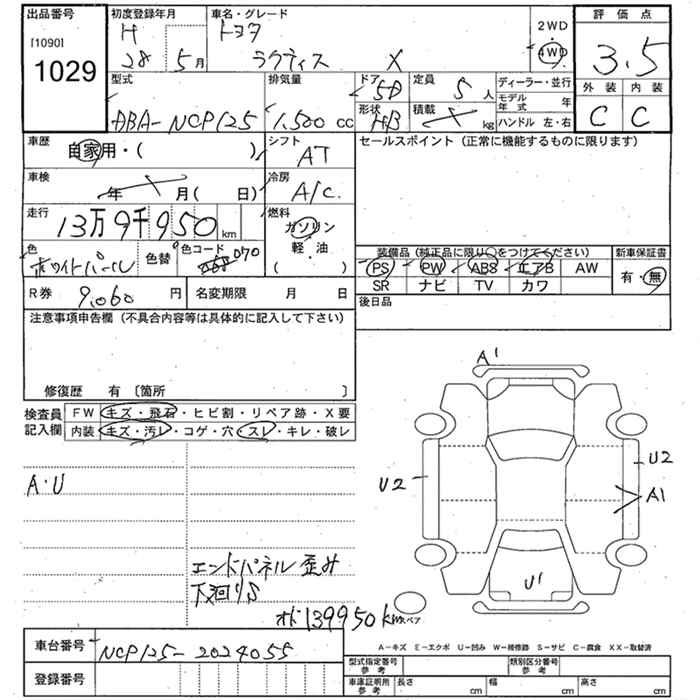 出品番号
[1090]
1029
初度登録年月
H
28 5月
車名・グレード
トヨタ
ラクティス X
2WD
・
4WD
評価点
3.5
外装 内装
C C
型式
DBA-NCP125
排気量
1,500 cc
ドア
5D
形状
HB
定員
5人
積載
kg
ディーラー・並行
モデル年式 年
ハンドル 左・右
車歴
自家用・( )
シフト
AT
セールスポイント (正常に機能するものに限ります)
車検
年 月( 日)
冷房
A/C
走行
13万9千950km
燃料
ガソリン
軽・油
( )
色
ホワイトパール
色替
色コード
070
装備品(純正品に限り○をつけてください)
PS PW ABS エアB AW
SR ナビ TV カワ
新車保証書
有・無
R券 9,060円
名変期限 月 日
後日品
注意事項申告欄 (不具合内容等は具体的に記入して下さい)
修復歴 有 [箇所 ]
検査員
記入欄
FW キズ・飛石・ヒビ割・リペア跡・X要
内装 キズ・汚レ・コゲ・穴・スレ・キレ・破レ
A・U
エンドパネル 歪み
下廻りS
オド139950km
A1
U2
U2
A1
U1
スペア
A-キズ E-エクボ U-凹み W-補修跡 S-サビ C-腐食 XX-取替済
車台番号 NCP125-2024055
登録番号
型式指定番号
参考
類別区分番号
参考
車庫証明用
参考
長さ cm 幅 cm 高さ cm